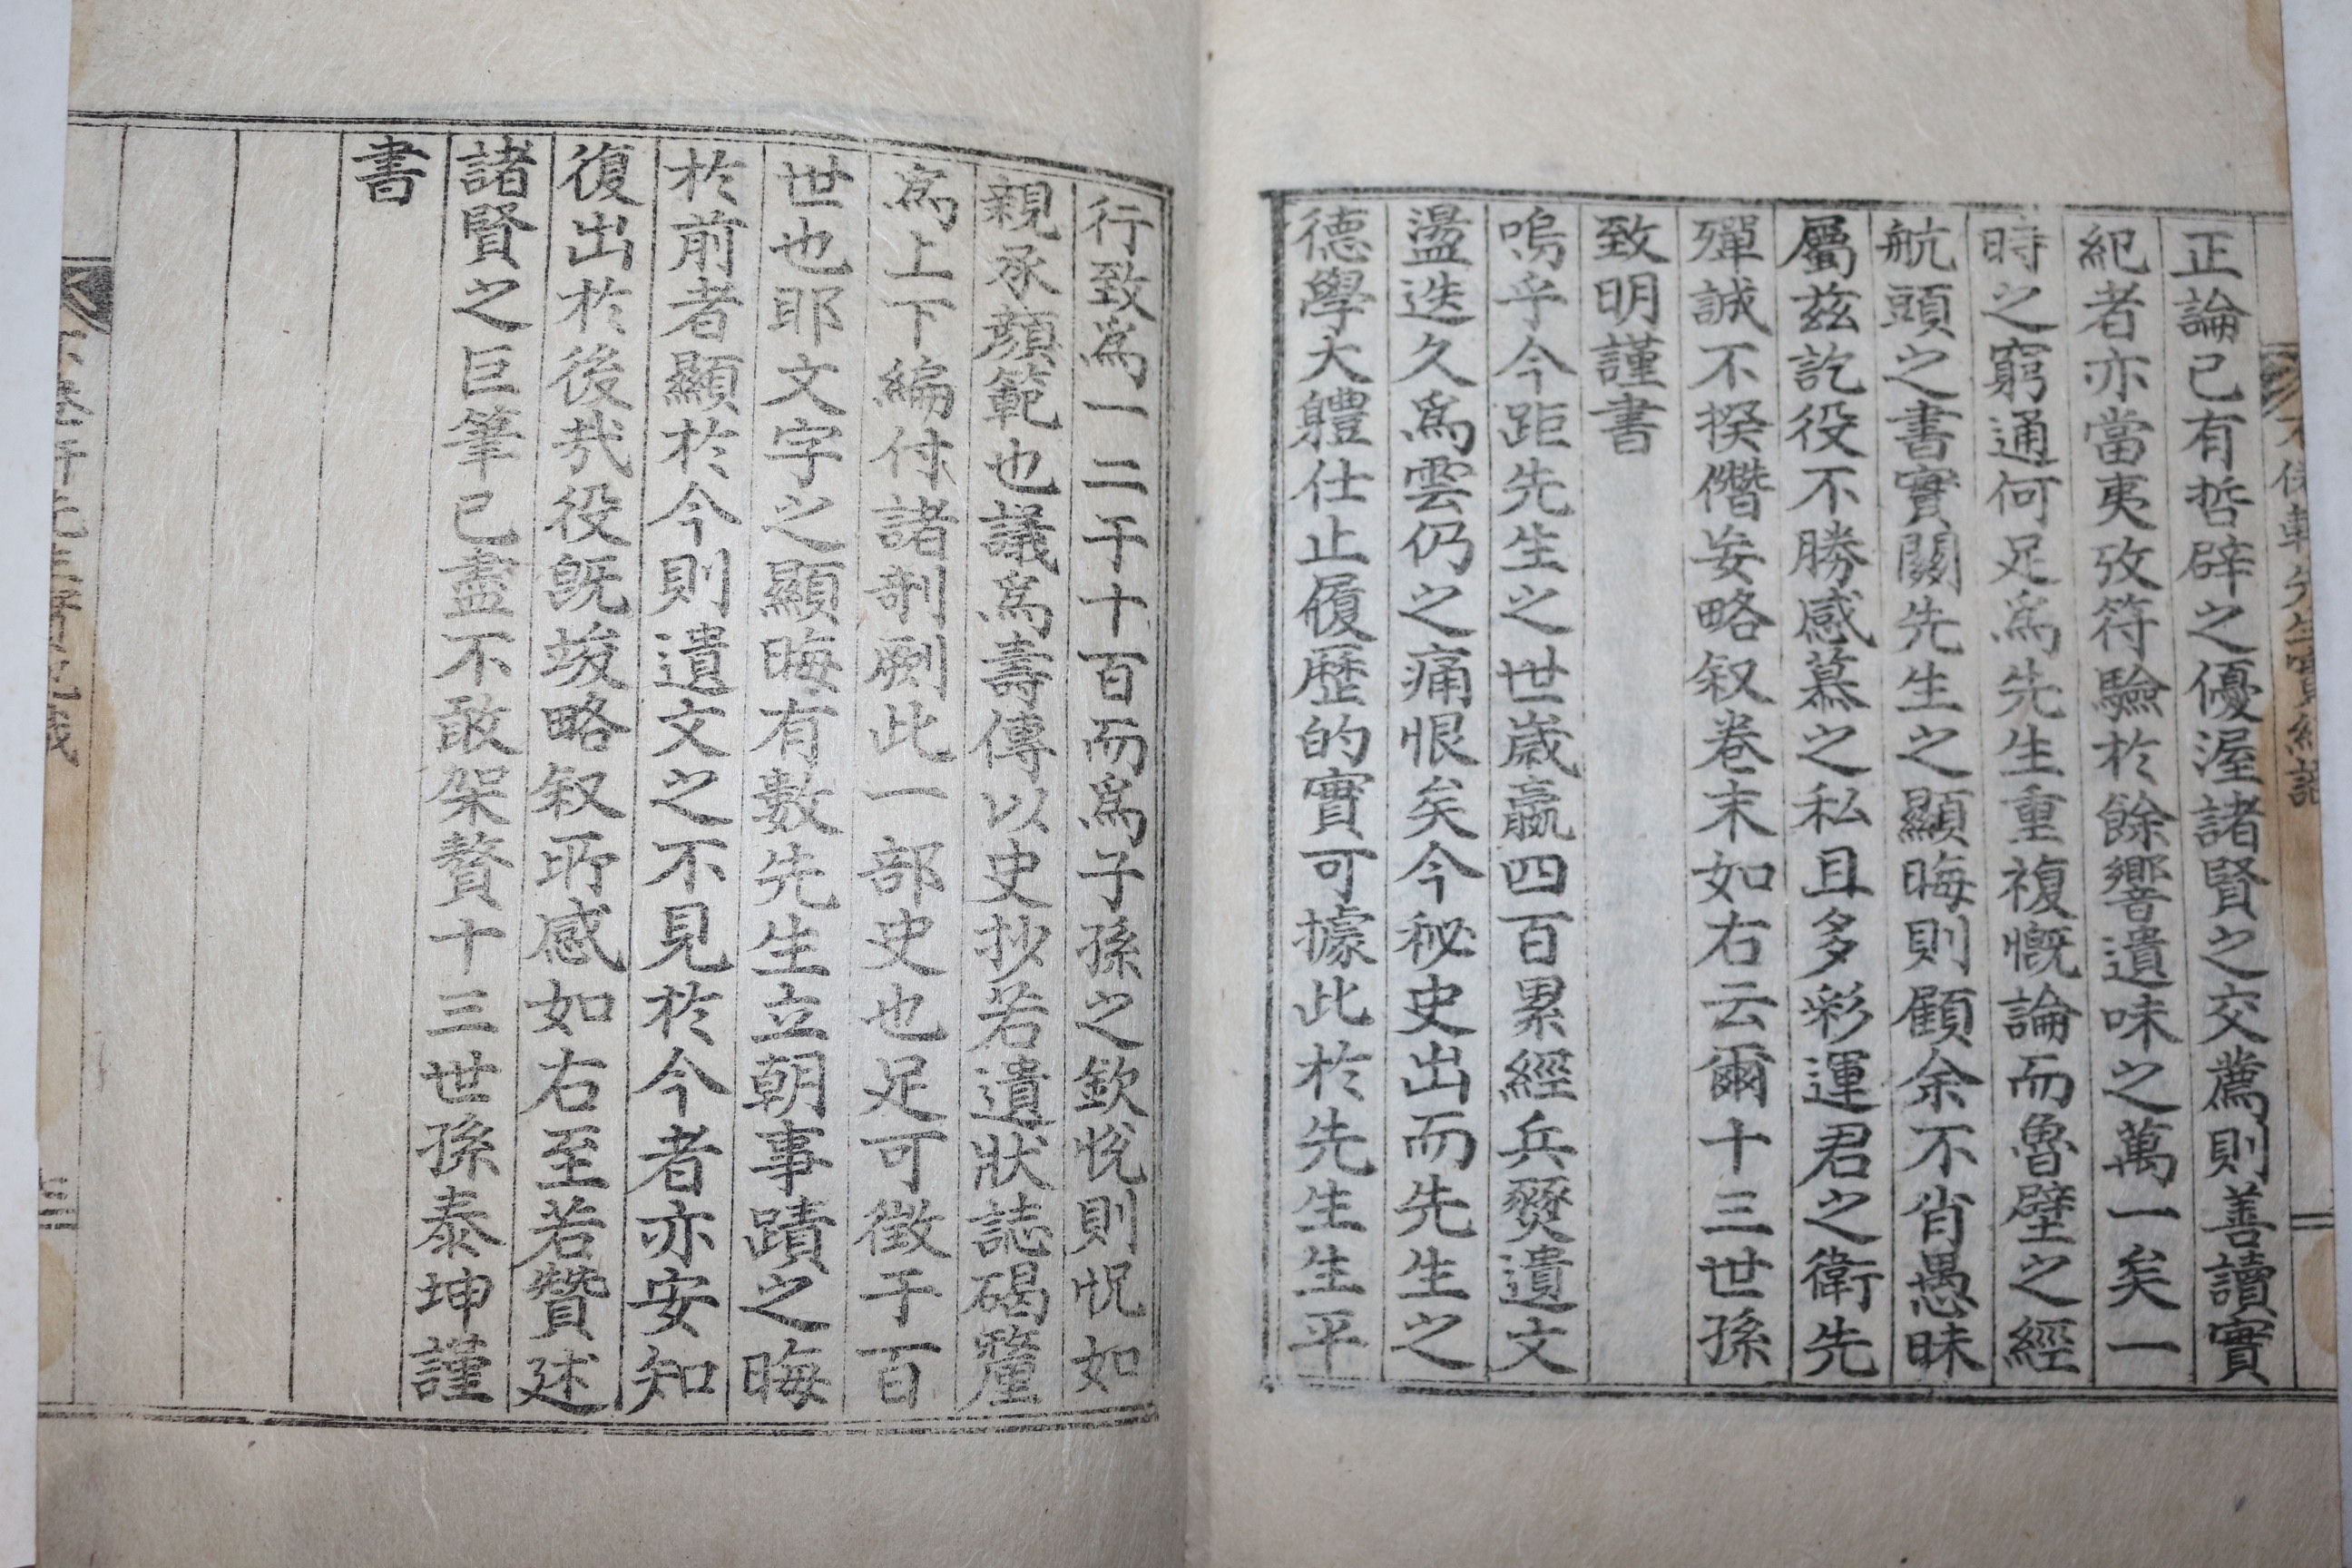 正論已有哲辟之優渥諸賢之交薦則善讀實
紀者亦當夷攷符驗於餘響遺味之萬一矣一
時之窮通何足爲先生重複慨論而魯壁之經
航頭之書實關先生之顯晦則顧余不肖愚昧
屬玆訖役不勝感慕之私且多彩運君之衛先
殫誠不揆僭妄略叙卷末如右云爾十三世孫
致明謹書
嗚乎今距先生之世歲贏四百累經兵燹遺文
盪迭久爲雲仍之痛恨矣今秘史出而先生之
德學大軆仕止履歷的實可據此於先生生平
行致爲一二于十百而爲子孫之欽悅則怳如
親承顔範也議爲壽傳以史抄若遺狀誌碣釐
爲上下編付諸剞劂此一部史也足可徴于百
世也耶文字之顯晦有數先生立朝事蹟之晦
於前者顯於今則遺文之不見於今者亦安知
復出於後㢤役旣竣略叙所感如右至若贊述
諸賢之巨筆已盡不敢架贅十三世孫泰坤謹
書